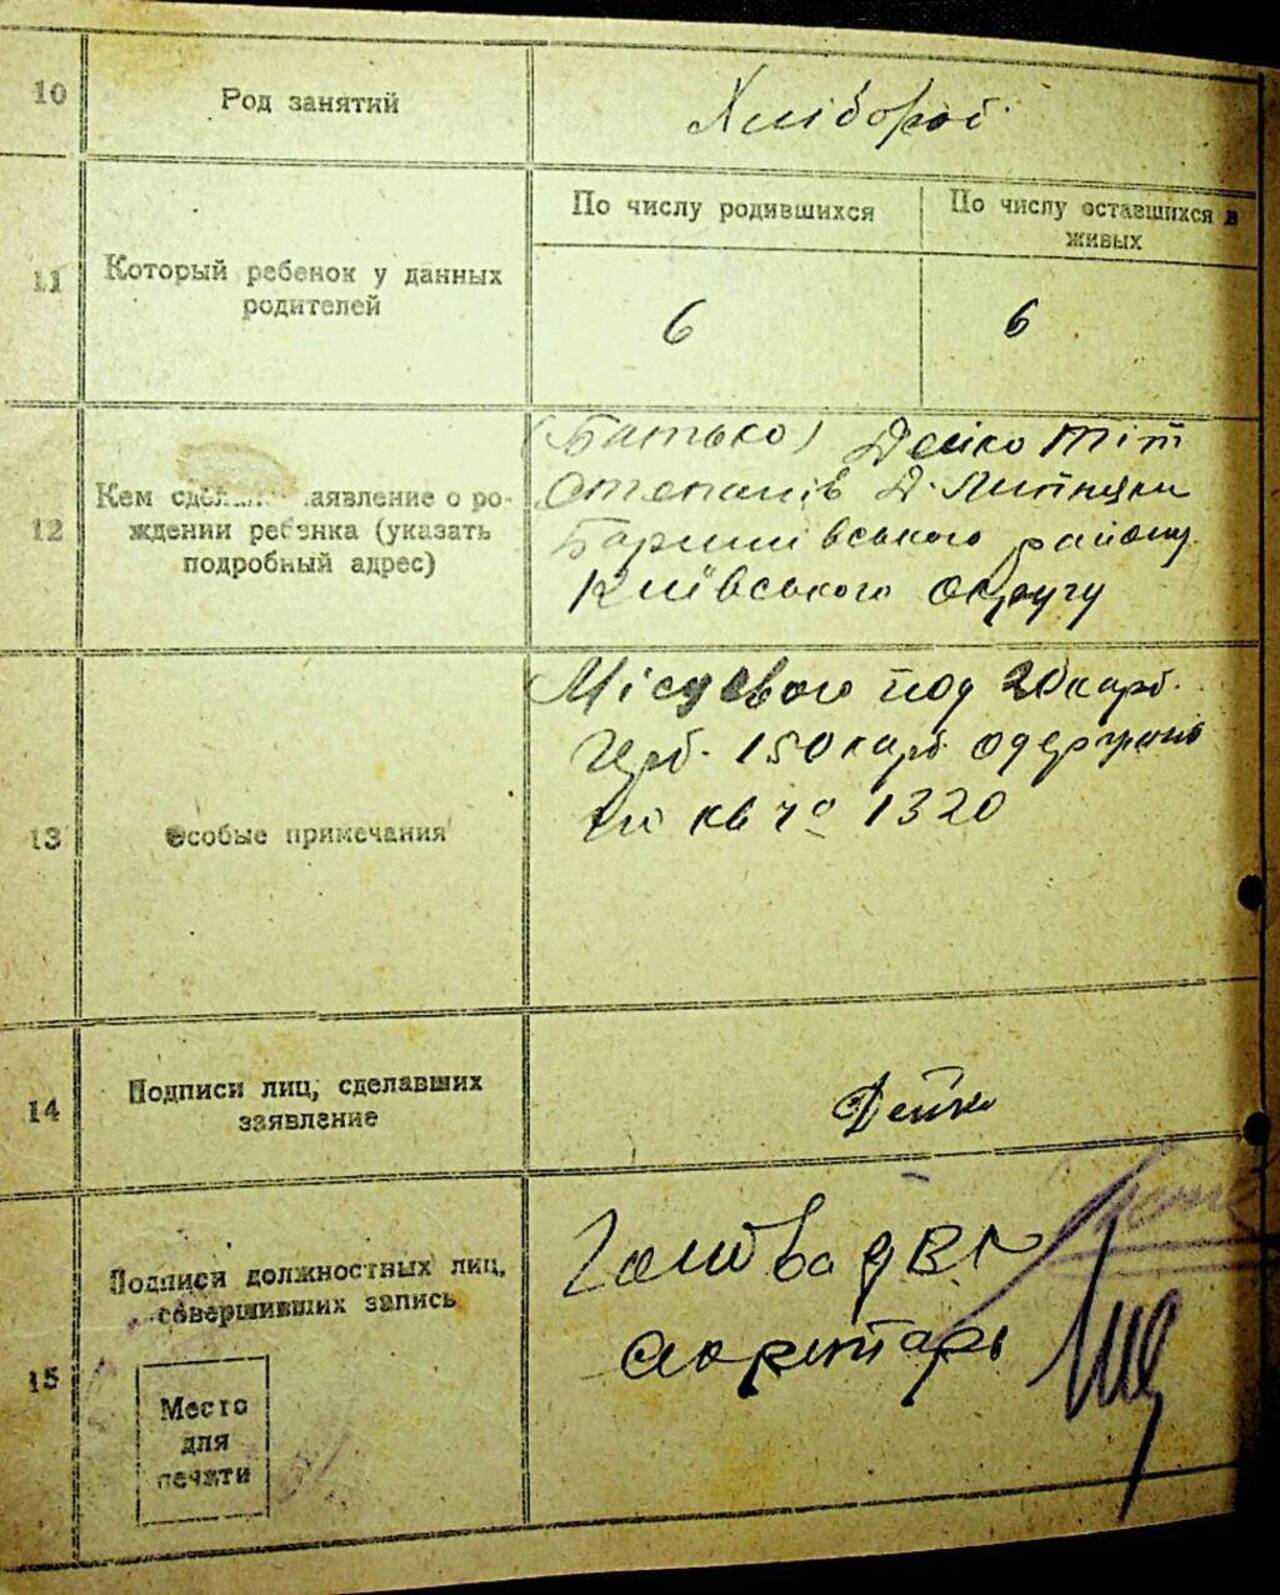 10
Род занятий
Хлібороб
11
Который ребенок у данных
родителей
По числу родившихся
По числу оставшихся в
живых
6
6
12
Кем заявление о ро-
ждении ребенка (указать
подробный адрес)
(Батько) Дейко Тіт
Степанів
Баришівського району
Київського округу
13
Особые примечания
Місцевого под 20 карб.
150 карб. одержано
по кв № 1320
14
Подписи лиц, сделавших
заявление
Дейко
15
Подписи должностных лиц,
совершивших запись
Место
для
печати
Голова